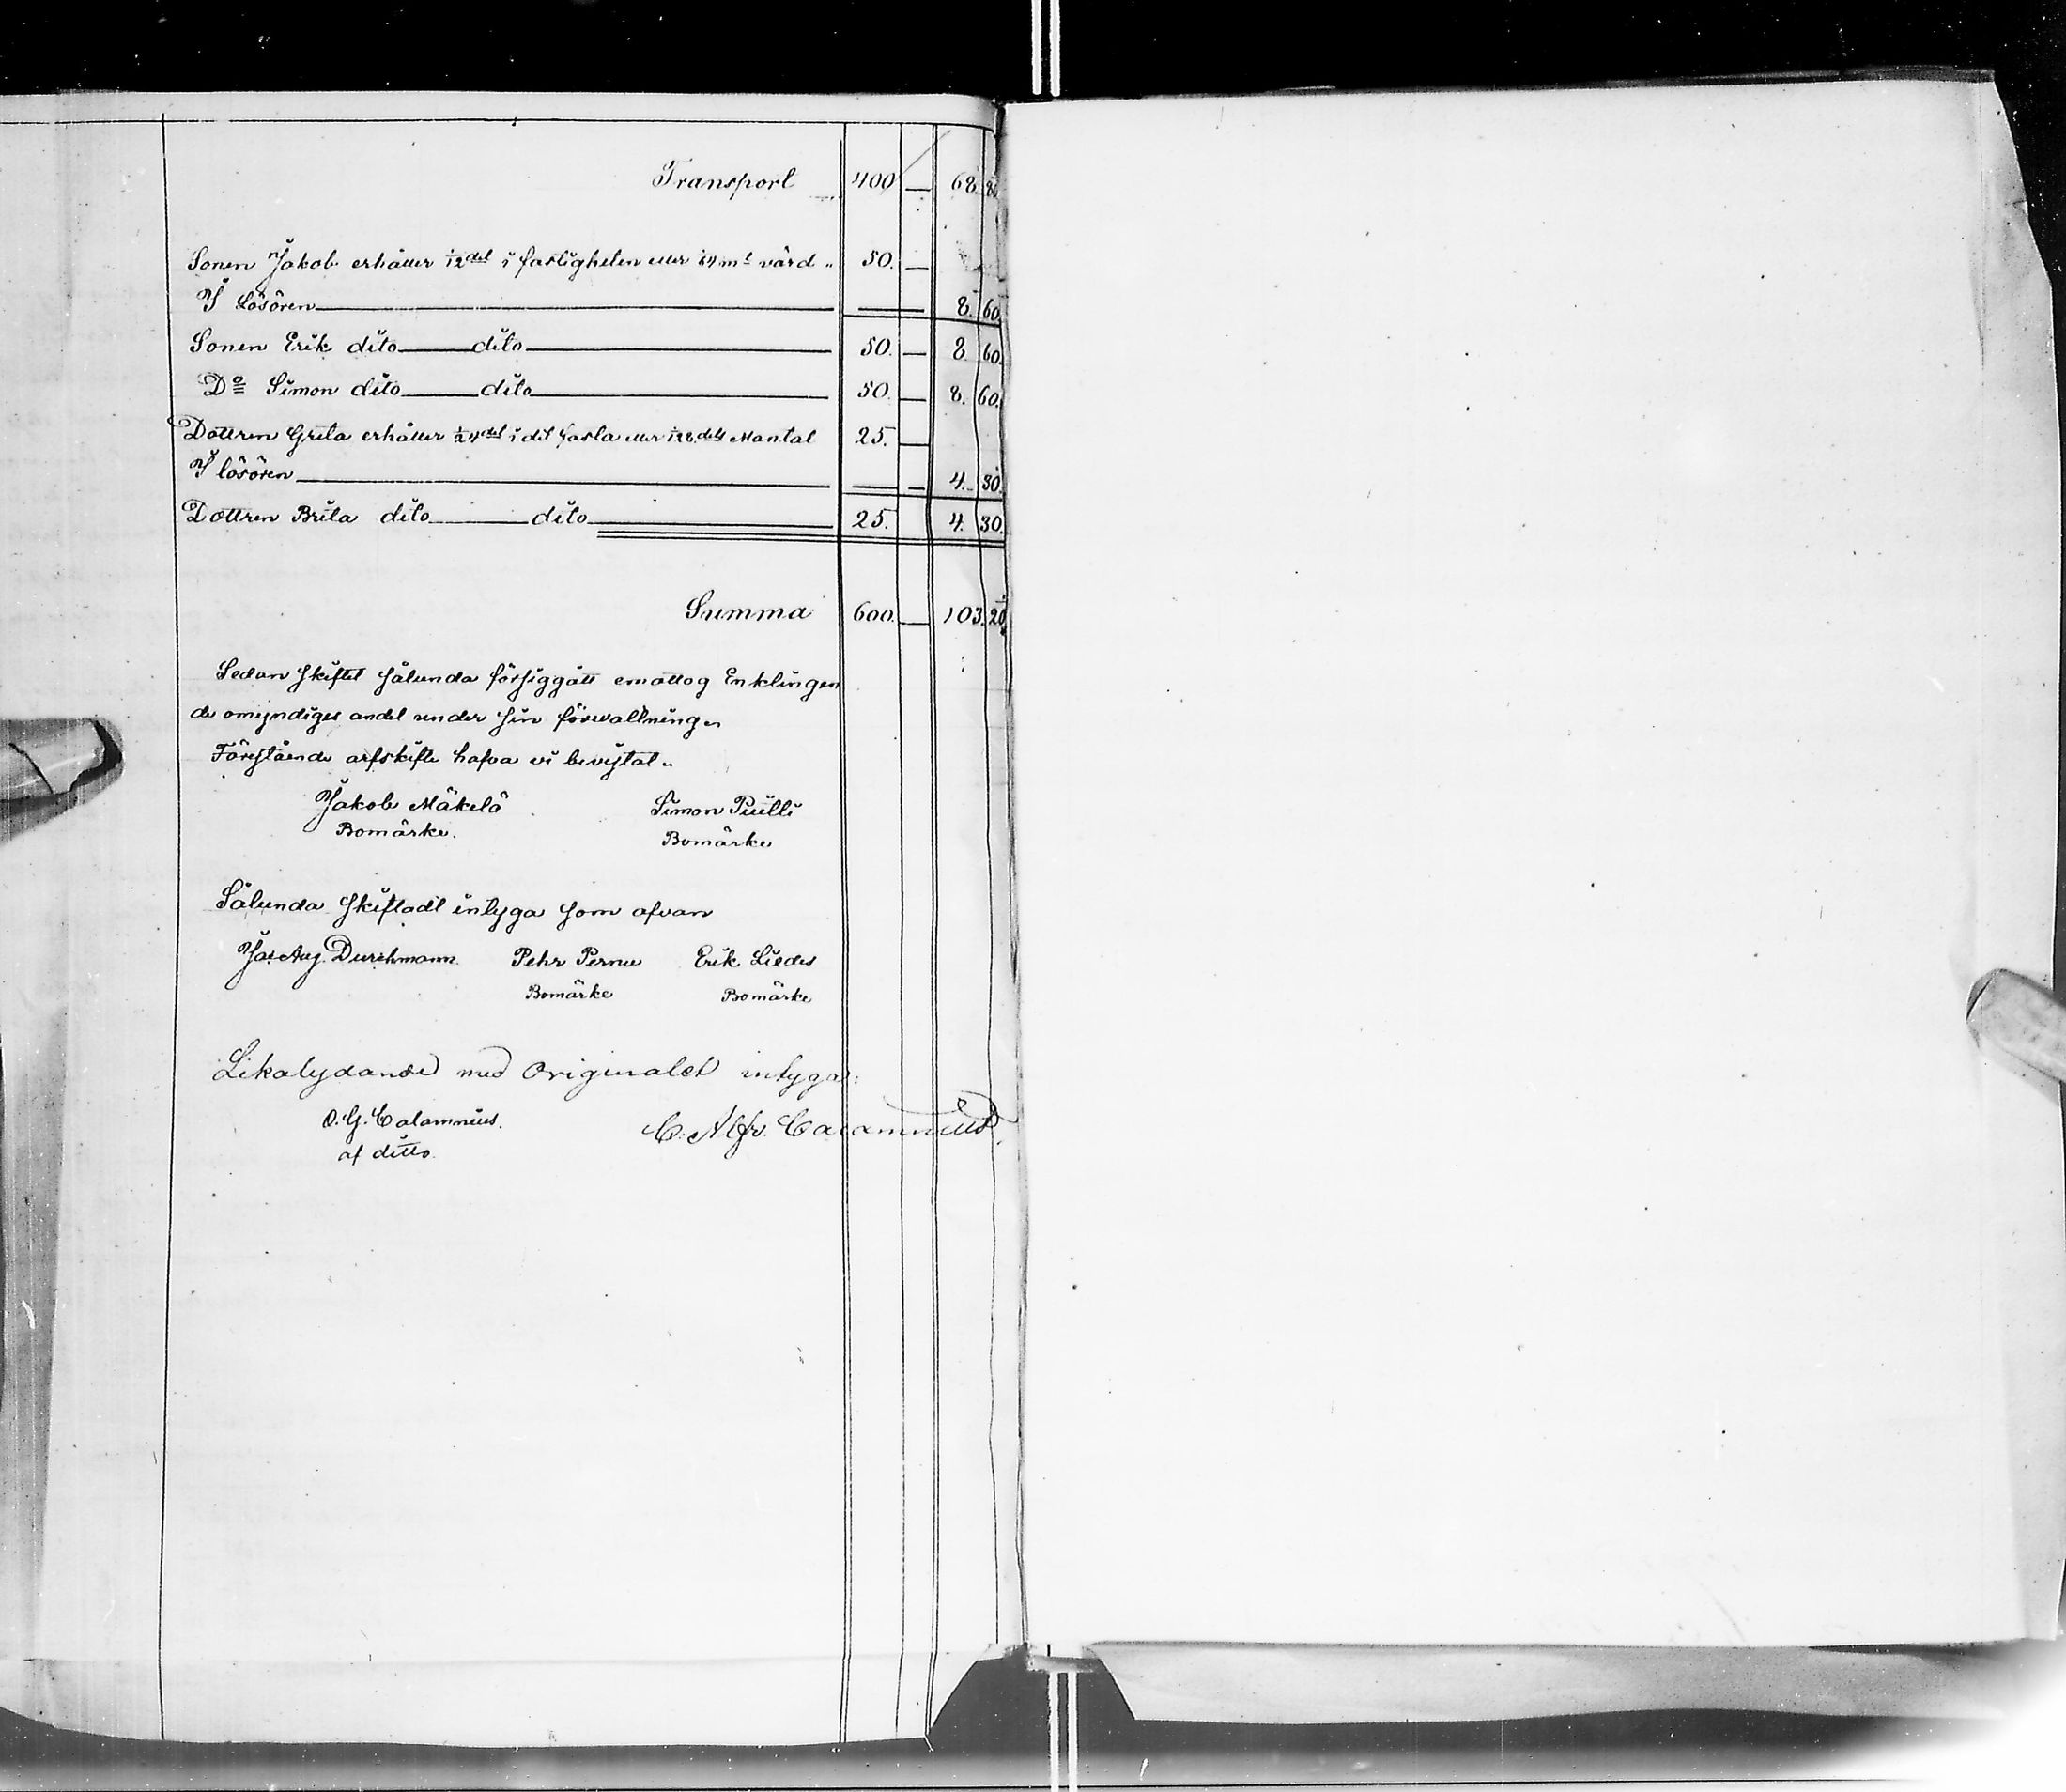 Transport 400 — 68. 80
Sonen Jakob erhåller 1/12del i fastigheten eller 1/64 mt värd „ 50. —
I lösören — 8. 60.
Sonen Erik dito dito 50. — 8. 60.
Do Simon dito dito 50. — 8. 60.
Dottren Greta erhåller 1/24del i det fasta eller 1/128dels Mantal 25. —
I lösören — 4. 30.
Dottren Brita dito dito 25. 4. 30.
Summa 600. — 103. 20
Sedan skiftet sålunda försiggått emottog Enklingen
de omyndiges andel under sin förvaltning„
Förestående arfskifte hafva vi bevistat„
Jakob Mäkelä Simon Puilli
Bomärke. Bomärke
Sålunda skiftadt intyga som ofvan
Jac Aug. Durchmann. Pehr Pernu Erik Liedes
Bomärke Bomärke
Likalydande med Originalet intygar:
O. G. Calamnius. C. Alfr. Calamnius.
af ditto